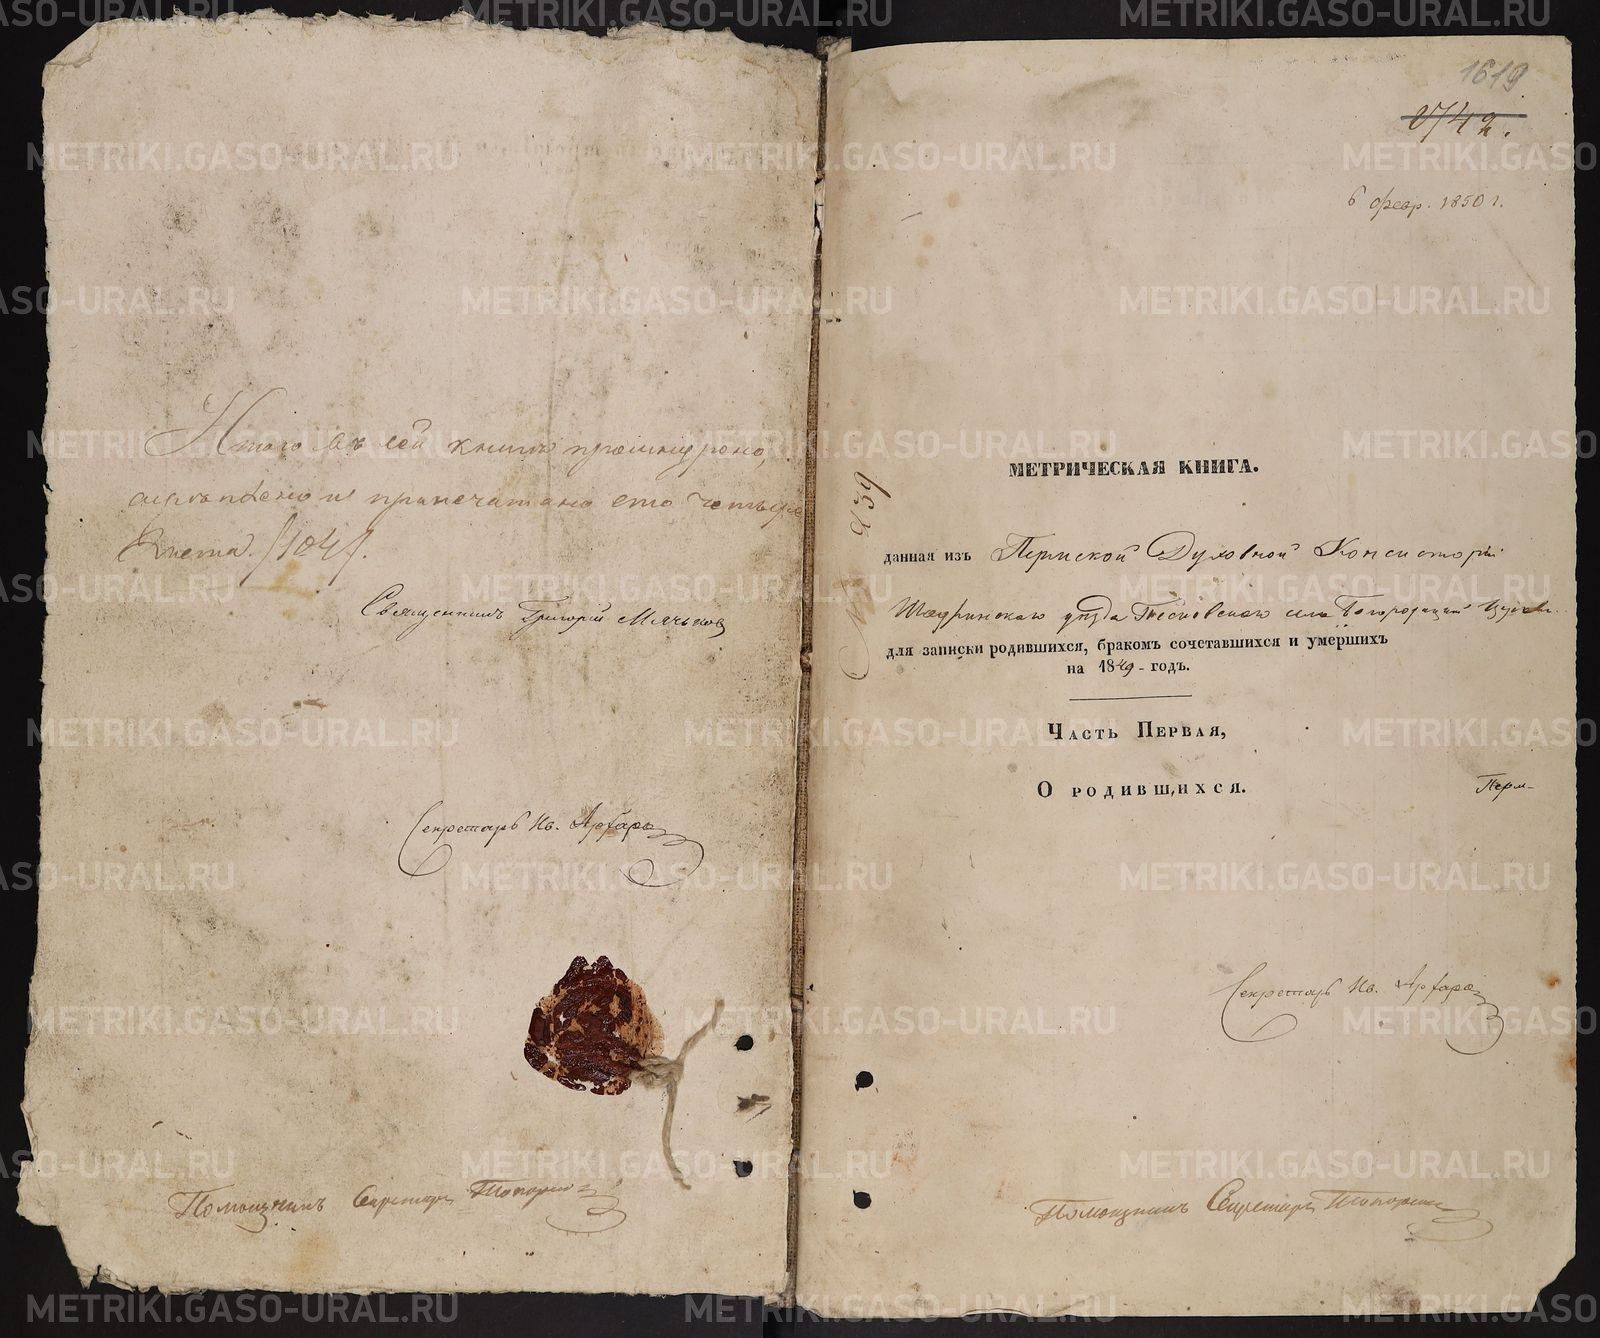 Итого въ сей книгѣ прошнуровано,
скрѣплено и припечатано сто четыре
листа. /104/.
Священникъ Григорій Мячковъ
Секретарь Ив.
Помощникъ Секретаря Топорковъ
1619
2742.
6 февр. 1850 г.
МЕТРИЧЕСКАЯ КНИГА.
данная изъ Пермской Духовной Консисторіи
Шадринскаго уѣзда села Богородицкой Церкви
для записки родившихся, бракомъ сочетавшихся и умершихъ
на 1849 - годъ.
Часть Первая,
О родившихся.
Перм-
Секретарь Ив.
Помощникъ Секретаря Топорковъ
METRIKI.GASO-URAL.RU